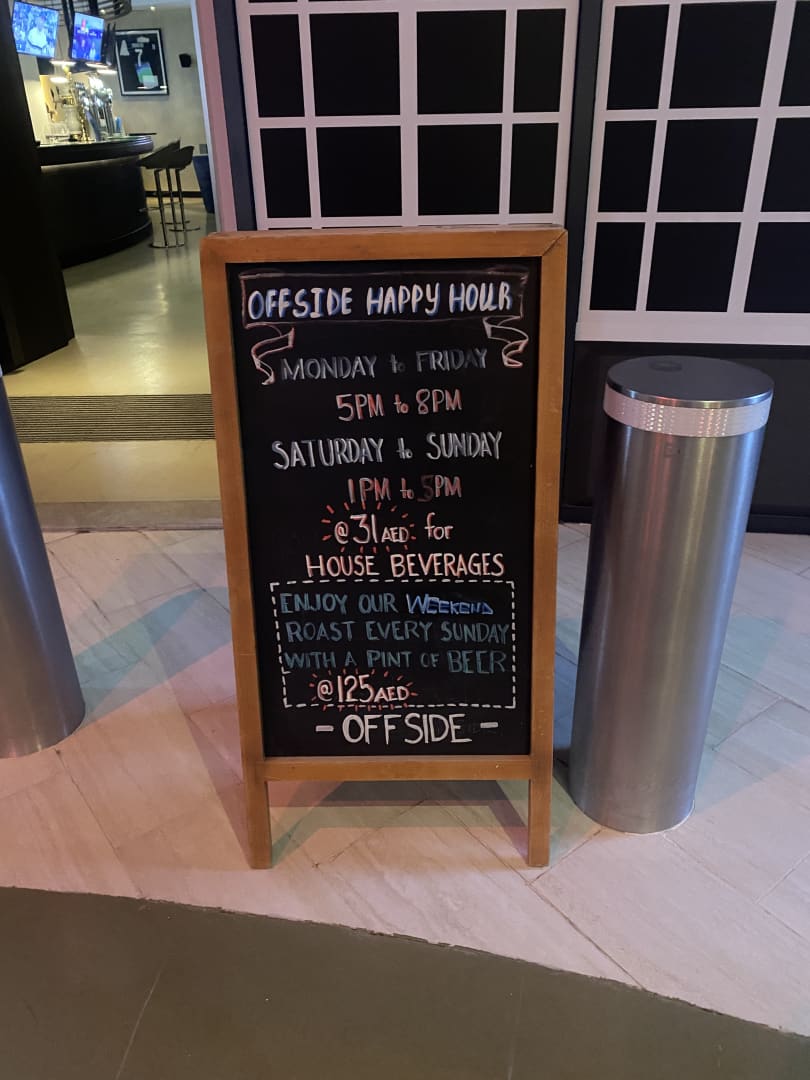 OFFSIDE HAPPY HOUR
MONDAY to FRIDAY
5PM to 8PM
SATURDAY to SUNDAY
1PM to 5PM
@31AED for
HOUSE BEVERAGES
ENJOY OUR WEEKEND
ROAST EVERY SUNDAY
WITH A PINT OF BEER
@125AED
- OFFSIDE -